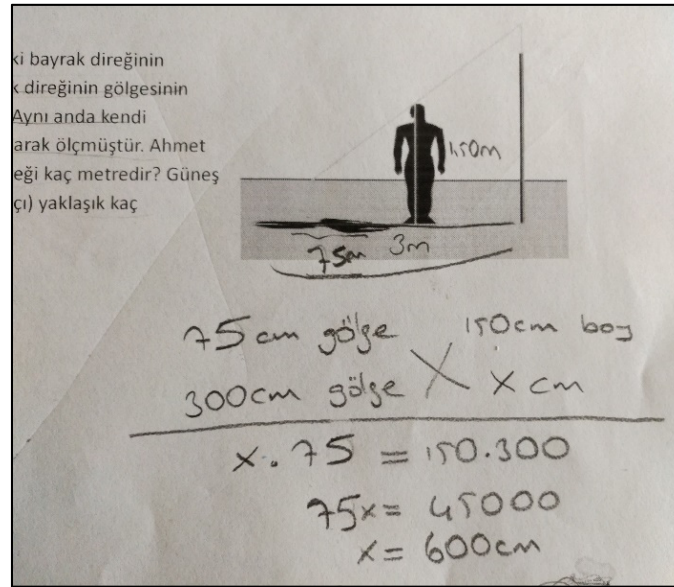 ki bayrak direğinin
k direğinin gölgesinin
Aynı anda kendi
arak ölçmüştür. Ahmet
eği kaç metredir? Güneş
çı) yaklaşık kaç
1,50m
75cm 3m
75 cm gölge 150cm boy
300cm gölge x cm
x . 75 = 150.300
75x = 45000
x = 600cm